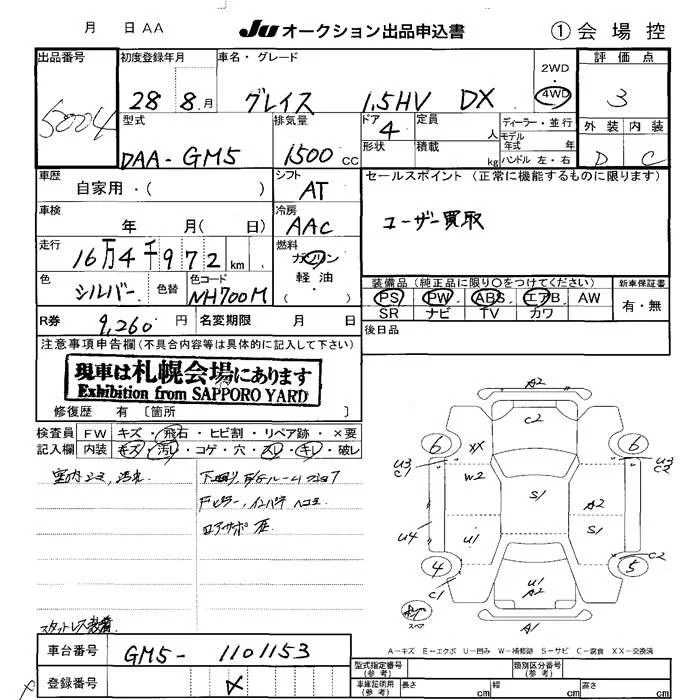 月 日 AA JU オークション出品申込書 ① 会 場 控
出品番号 初度登録年月 車名・グレード 評価点
5004 28 8月 グレイス 1.5HV DX 2WD・4WD 3
型式 排気量 ドア 4 定員 人 ディーラー・並行 外装 内装
DAA-GM5 1500cc 形状 積載 kg モデル年式 年 D C
ハンドル 左・右
車歴 シフト セールスポイント(正常に機能するものに限ります)
自家用・( ) AT
車検 冷房 ユーザー買取
年 月( 日) AAC
走行 燃料
16万4千972km ガソリン
軽油
色 色替 色コード 装備品(純正品に限り○をつけてください) 新車保証書
シルバー NH700M PS PW ABS エアB AW 有・無
SR ナビ TV カワ
R券 9,260円 名変期限 月 日 後日品
注意事項申告欄(不具合内容等は具体的に記入して下さい)
現車は札幌会場にあります
Exhibition from SAPPORO YARD
修復歴 有〔箇所 〕
検査員 FW キズ・飛石・ヒビ割・リペア跡・×要
記入欄 内装 キズ・汚レ・コゲ・穴・スレ・キレ・破レ
A2
C2
6 XX 6
U3 C1 W2 U3 C2
S1 A2
S1
U4 U1
4 C2 5
C1 U1 A2
スペア
A1
スタットレス装着
A−キズ E−エクボ U−凹み W−補修跡 S−サビ C−腐食 XX−交換済
車台番号 GM5- 1101153
型式指定番号(参考) 類別区分番号(参考)
登録番号 車庫証明用(参考) 長さ cm 幅 cm 高さ cm